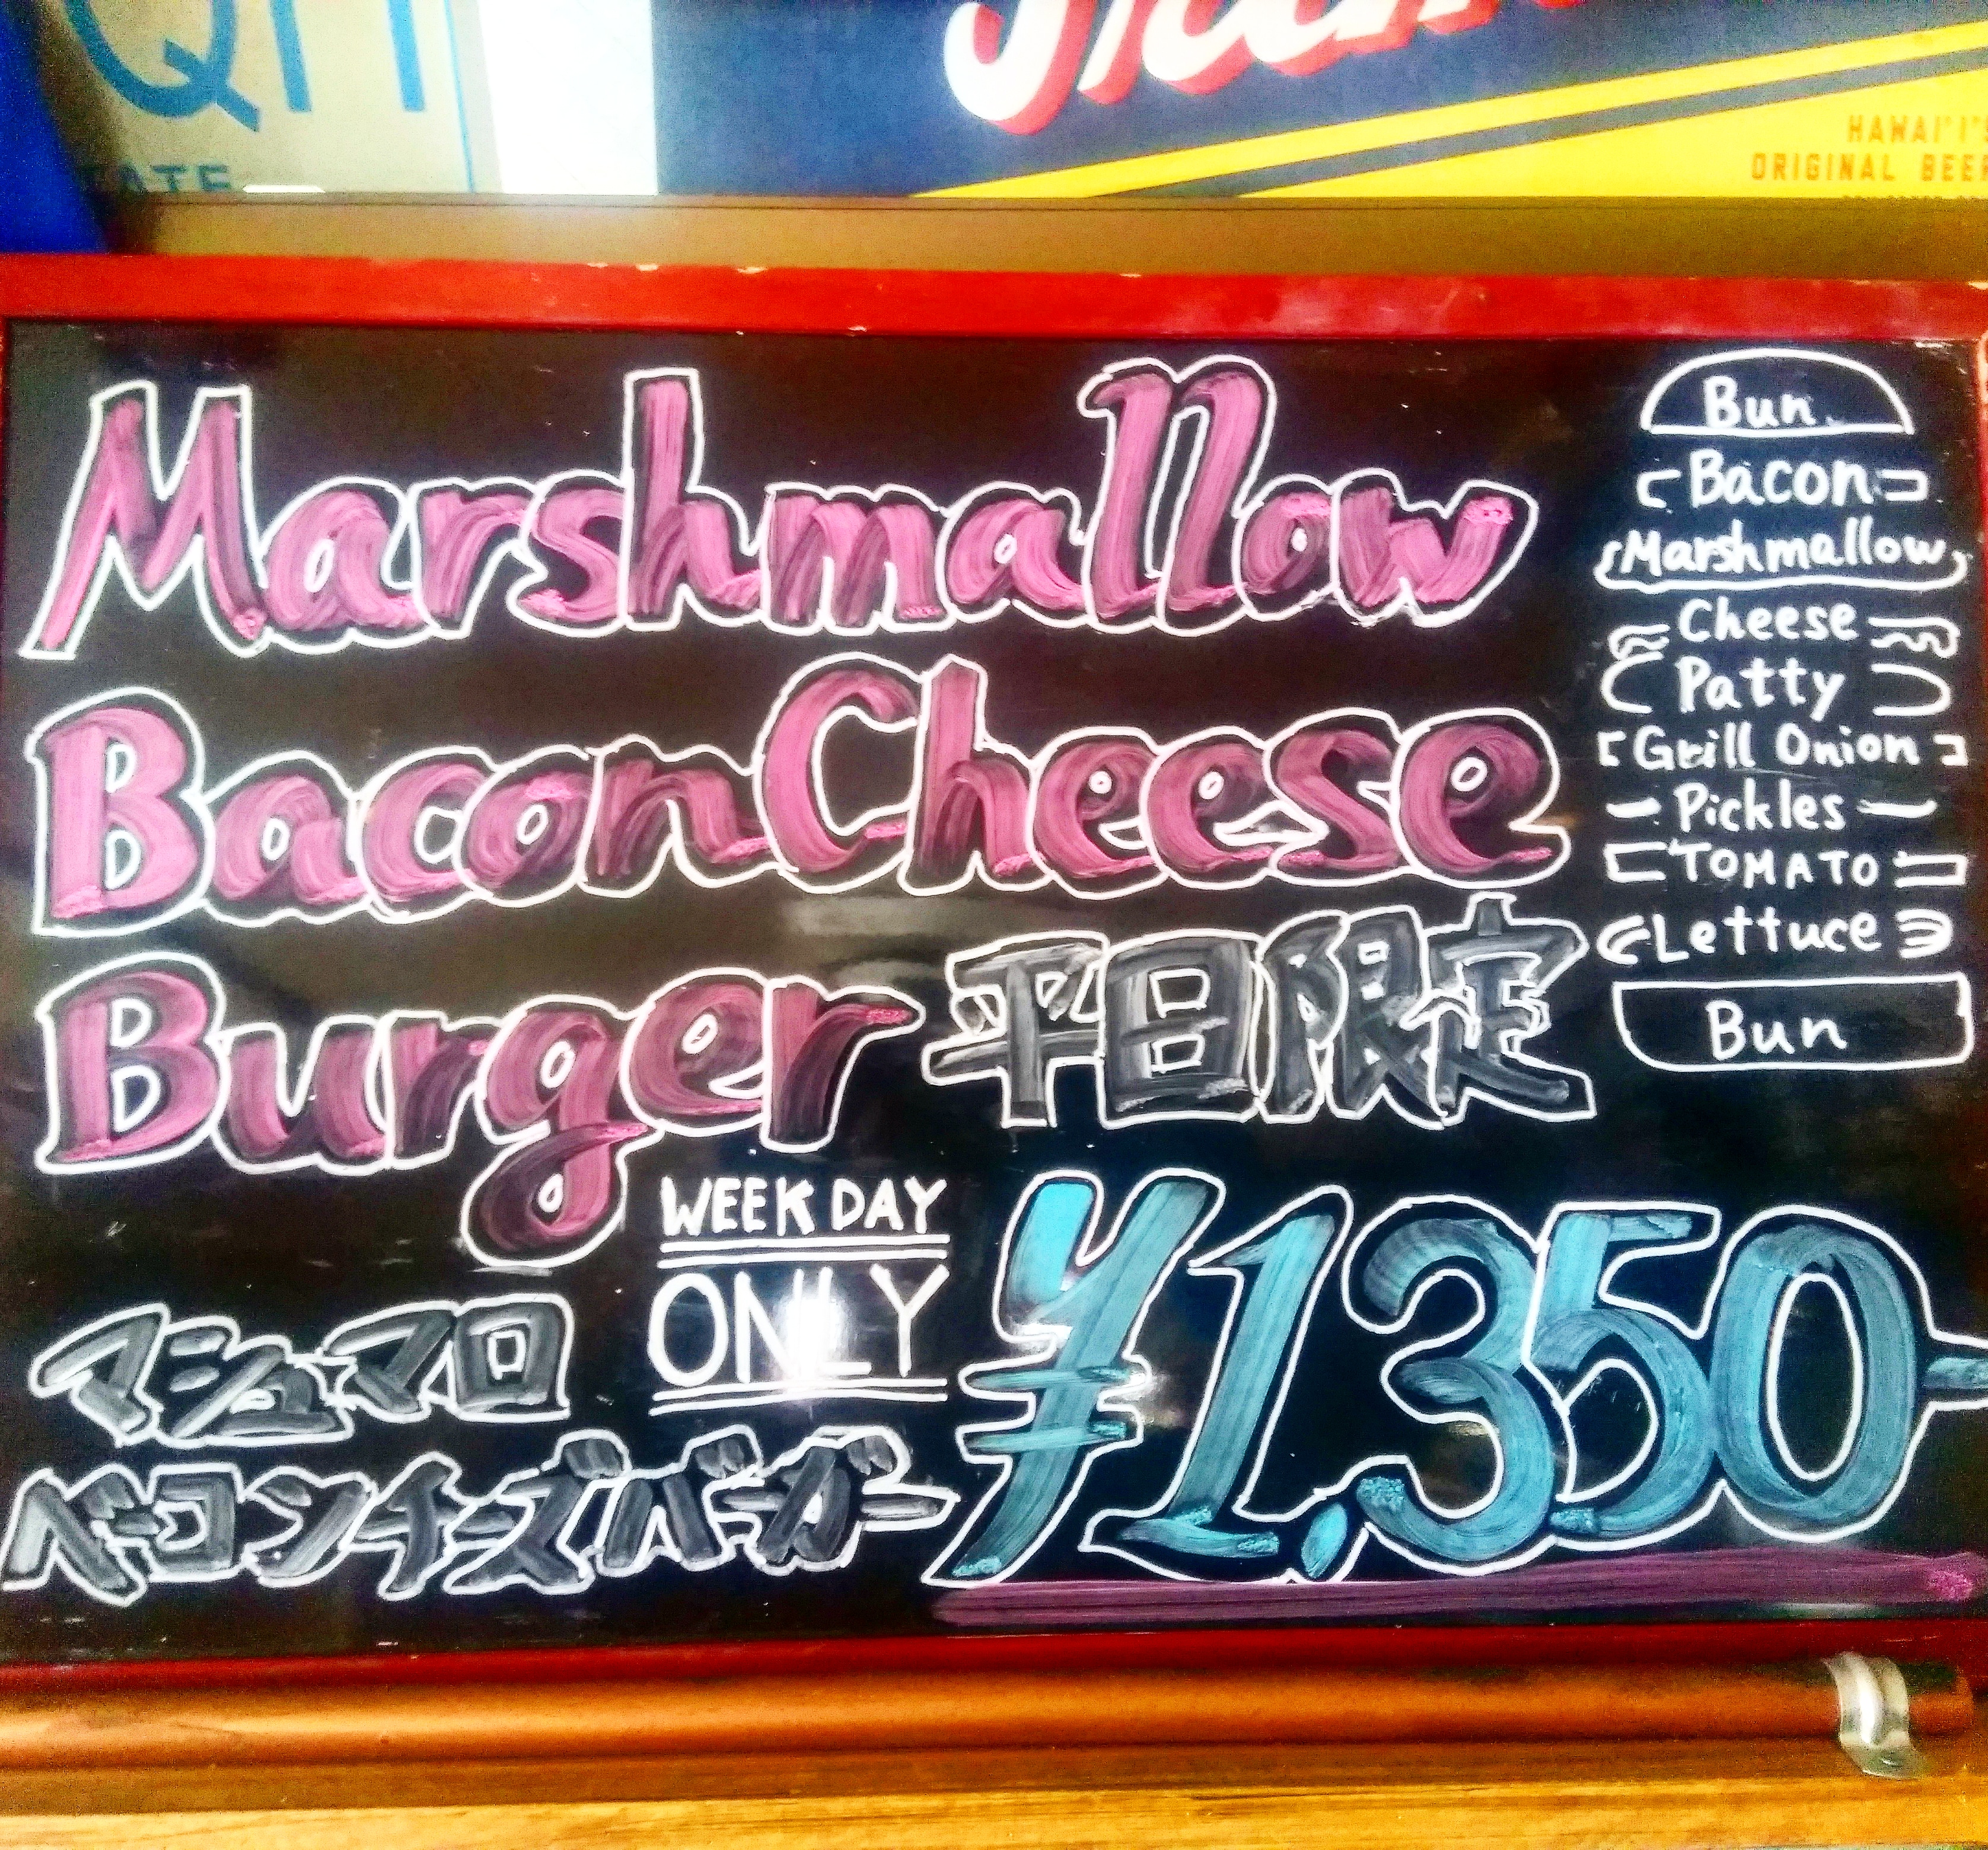 HAWAI'I'S
ORIGINAL BEER
Marshmallow
Bacon Cheese
Burger 平日限定
WEEKDAY
ONLY
¥1,350-
マシュマロ
ベーコンチーズバーガー
Bun
Bacon
Marshmallow
Cheese
Patty
Grill Onion
Pickles
TOMATO
Lettuce
Bun